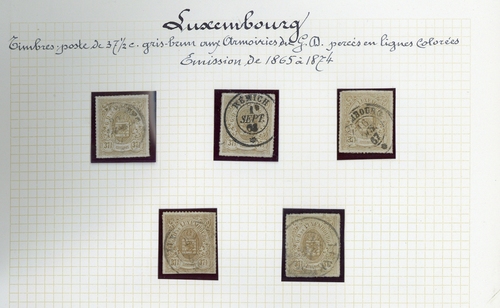 Luxembourg
Timbres-poste de 37½ c. gris-brun aux Armoiries du G.D. percés en lignes colorées
Émission de 1865 à 1874
REMICH
SEPT.